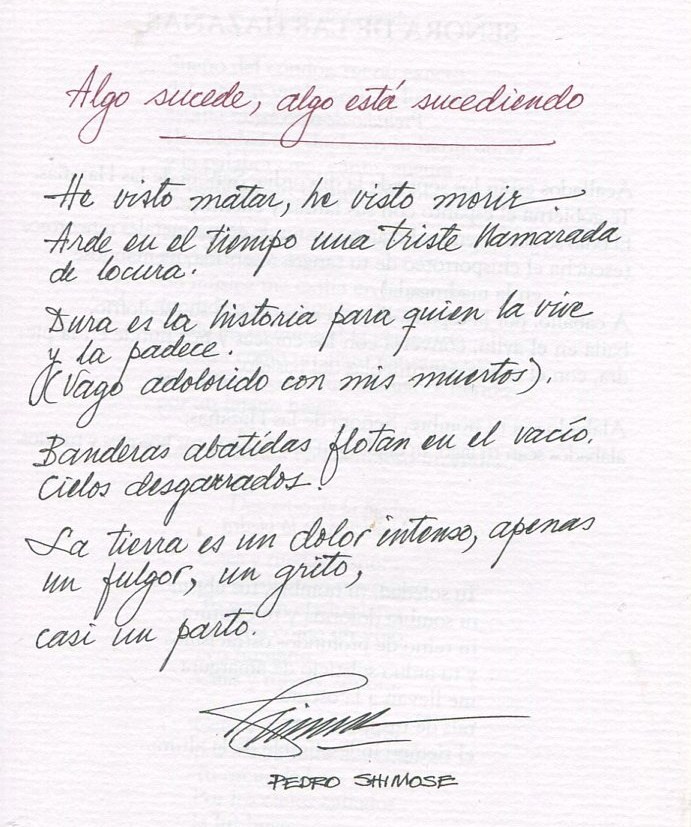 Algo sucede, algo está sucediendo
He visto matar, he visto morir.
Arde en el tiempo una triste llamarada
de locura.
Dura es la historia para quien la vive
y la padece.
(Vago adolorido con mis muertos).
Banderas abatidas flotan en el vacío.
Cielos desgarrados.
La tierra es un dolor intenso, apenas
un fulgor, un grito,
casi un parto.
Shimose
PEDRO SHIMOSE